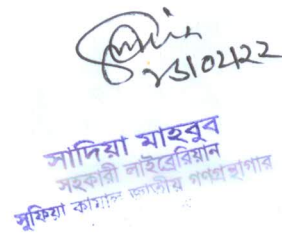 ২১/০২/২২
সাদিয়া মাহবুব
সহকারী লাইব্রেরিয়ান
সুফিয়া কামাল জাতীয় গণগ্রন্থাগার